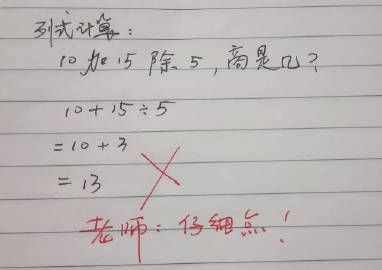 列式计算：
10加15除5，商是几？
10+15÷5
=10+3
=13
老师：仔细点！